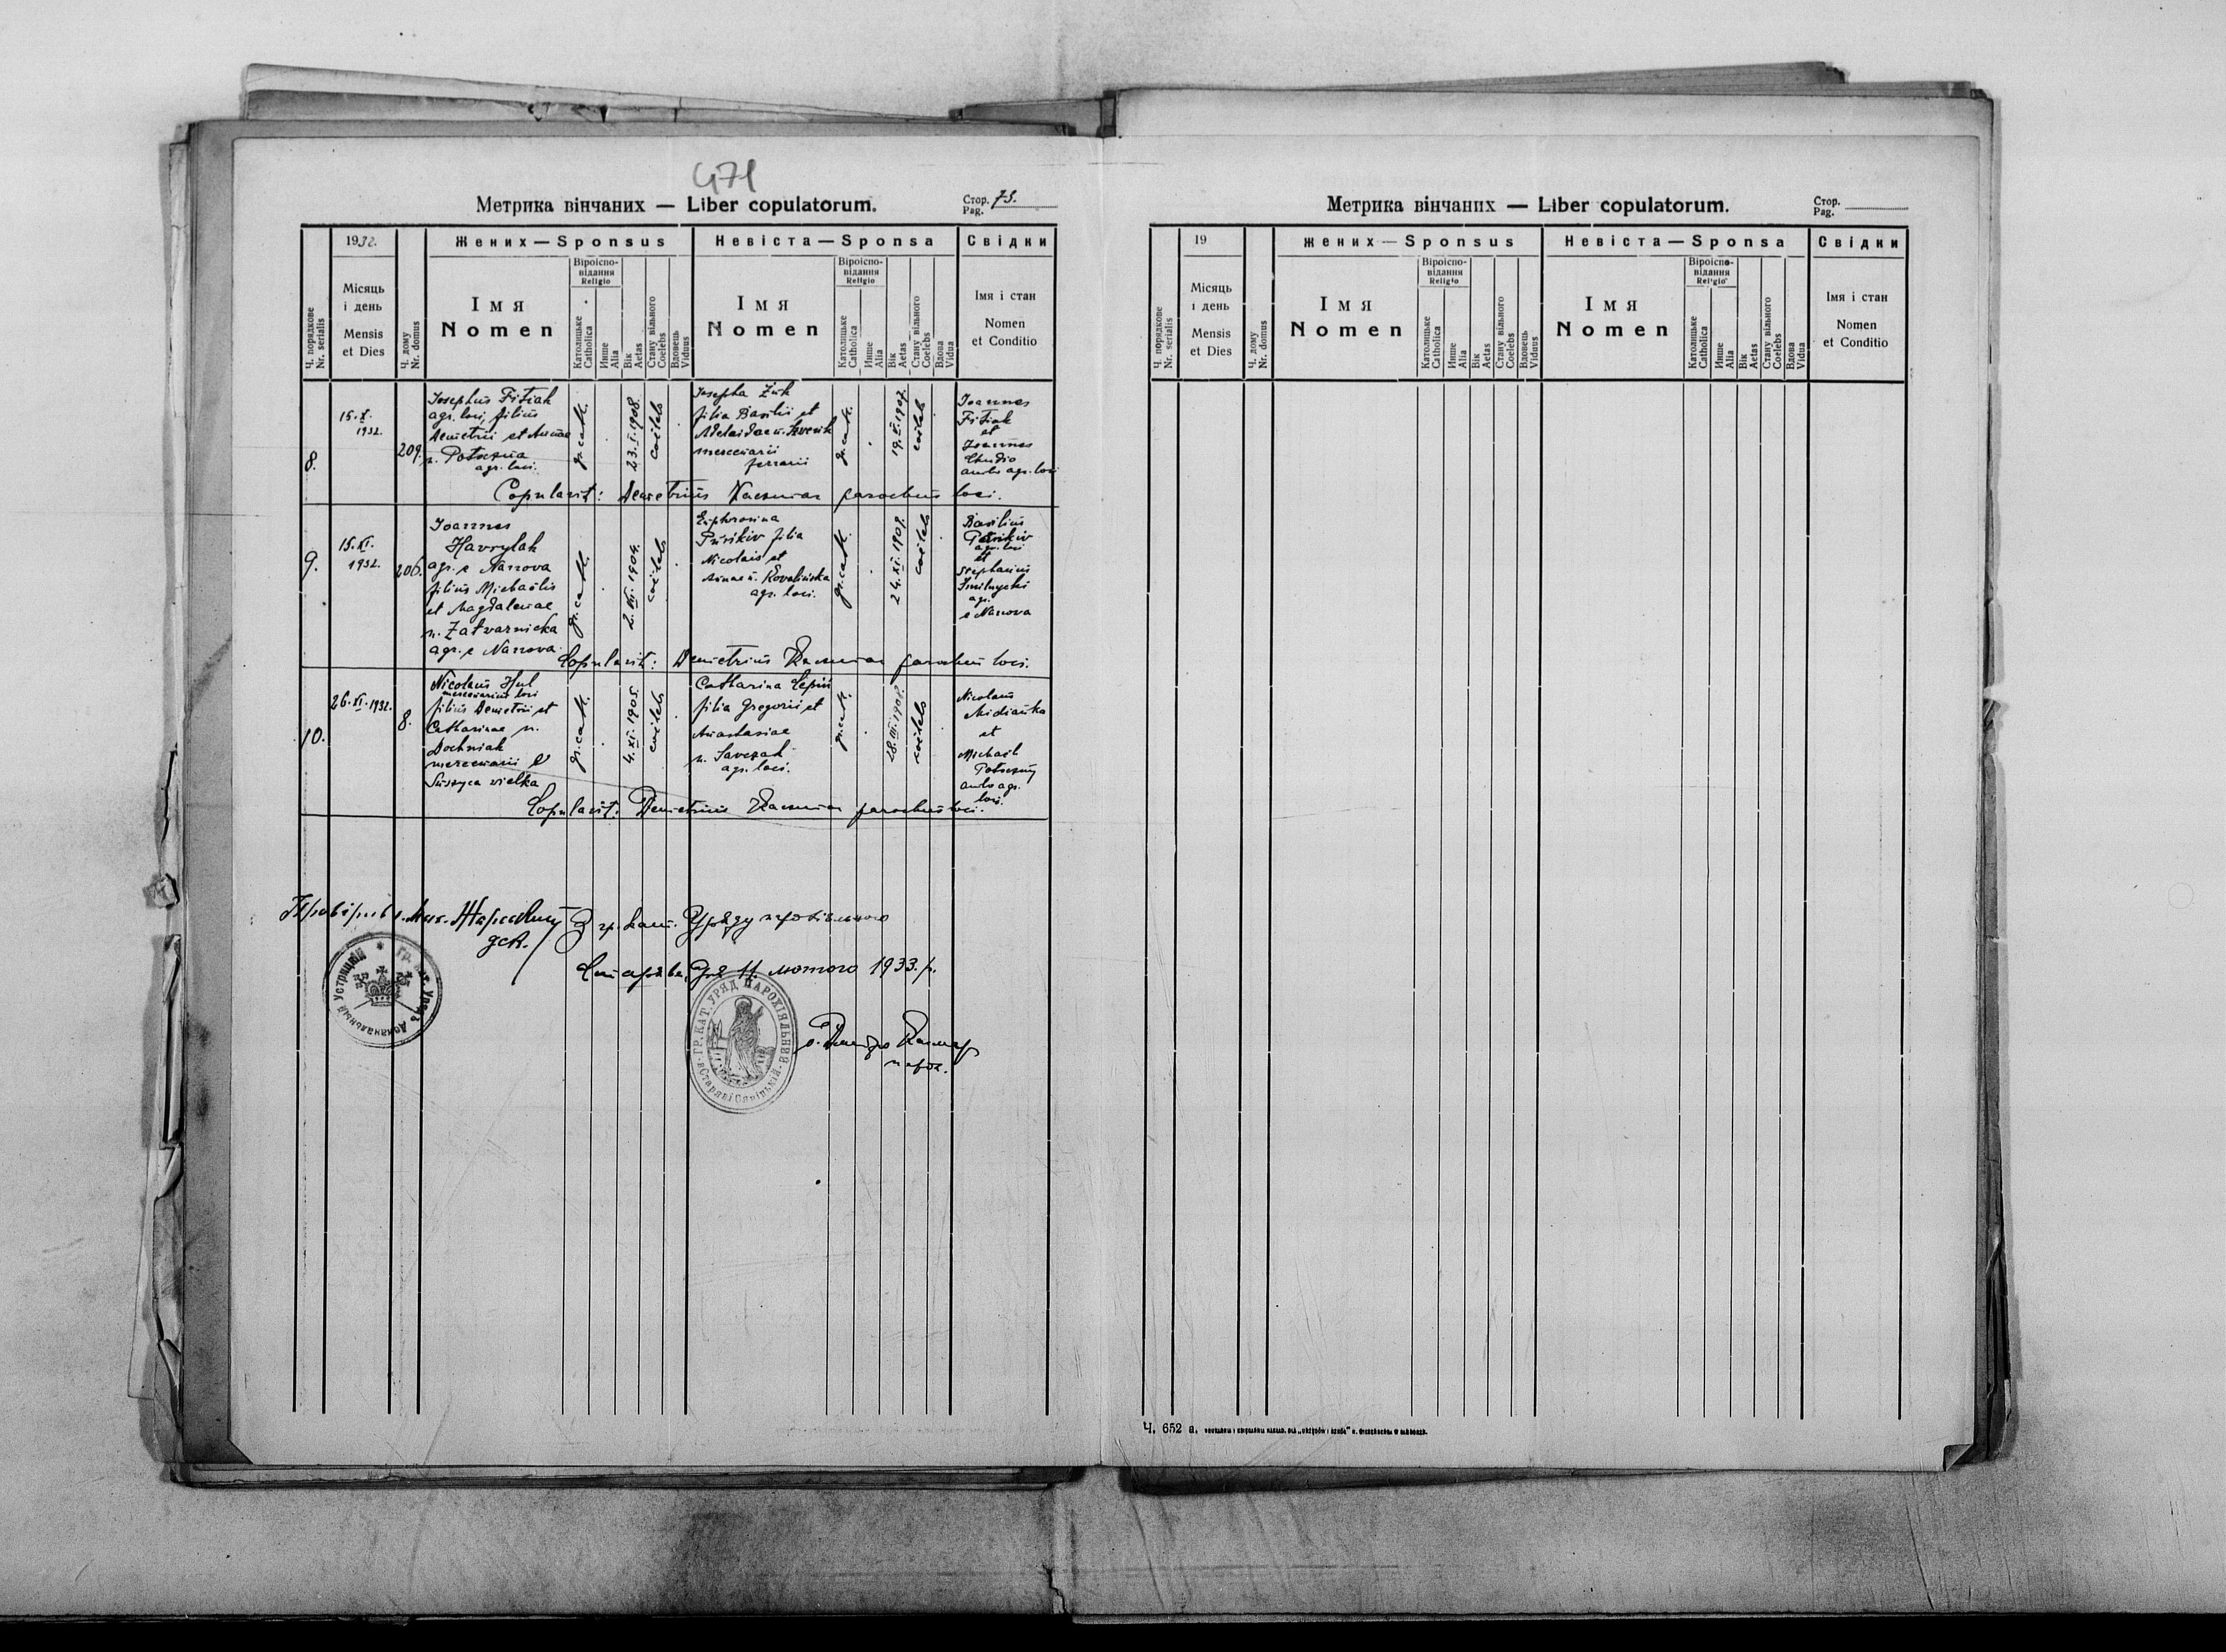 471
Метрика вінчаних — Liber copulatorum.
Стор. Pag. 75.
1932.
Жених — Sponsus
Невіста — Sponsa
Свідки
Ч. порядкове Nr. serialis
Місяць і день Mensis et Dies
Ч. дому Nr. domus
Імя Nomen
Віроіспо-відання Religio
Католицьке Catholica
Инше Alia
Вік Aetas
Стану вільного Coelebs
Вдовець Viduus
Імя Nomen
Віроіспо-відання Religio
Католицьке Catholica
Инше Alia
Вік Aetas
Стану вільного Coelebs
Вдова Vidua
Імя і стан Nomen et Conditio
8.
15.X.
1932.
209.
Josephus Fitiak
agr. loci, filius
Demetrii et Annae
n. Potoczna
agr. loci.
gr. cath.
23.I.1908.
coelebs
Josepha Żuk
filia Basilii et
Adelaidae n.
mercenarii
ferrarii
gr. cath.
coelebs
Joannes
Fitiak
et
Joannes
ambo agr. loci
Copulavit: Demetrius Kaczmar parochus loci.
9.
15.XI.
1932.
206.
Joannes
Havrylak
agr. e Nanova
filius Michaëlis
et Magdalenae
n. Zatvarnicka
agr. e Nanova.
gr. cath.
coelebs
Euphrosina
filia
Nicolai et
Annae n. Kovalińska
agr. loci.
gr. cath.
24.XI.1909.
coelebs
Basilius
agr. loci
et
Stephanus
agr.
e Nanova
Copulavit: Demetrius Kaczmar parochus loci.
10.
26.XI.1932.
8.
Nicolaus Hul
mercenarius loci
filius Demetrii et
Catharinae n.
Dochniak
mercenarii e
Suszyca vielka
gr. cath.
4.XI.1905.
coelebs
Catharina
filia Gregorii et
Anastasiae
n. Savczak
agr. loci.
gr. cath.
coelebs
Nicolaus
et
Michaël
Potoczny
ambo agr.
loci.
Copulavit: Demetrius Kaczmar parochus loci.
З гр. кат. Уряду парохіяльного
дня 11 лютого 1933. р.
о. Дмитро Качмар
парох.
Деканальный Устрицкій
ГР. КАТ. УРЯД ПАРОХІЯЛЬНИЙ
Метрика вінчаних — Liber copulatorum.
Стор. Pag.
19
Жених — Sponsus
Невіста — Sponsa
Свідки
Ч. порядкове Nr. serialis
Місяць і день Mensis et Dies
Ч. дому Nr. domus
Імя Nomen
Віроіспо-відання Religio
Католицьке Catholica
Инше Alia
Вік Aetas
Стану вільного Coelebs
Вдовець Viduus
Імя Nomen
Віроіспо-відання Religio
Католицьке Catholica
Инше Alia
Вік Aetas
Стану вільного Coelebs
Вдова Vidua
Імя і стан Nomen et Conditio
Ч. 652 а.